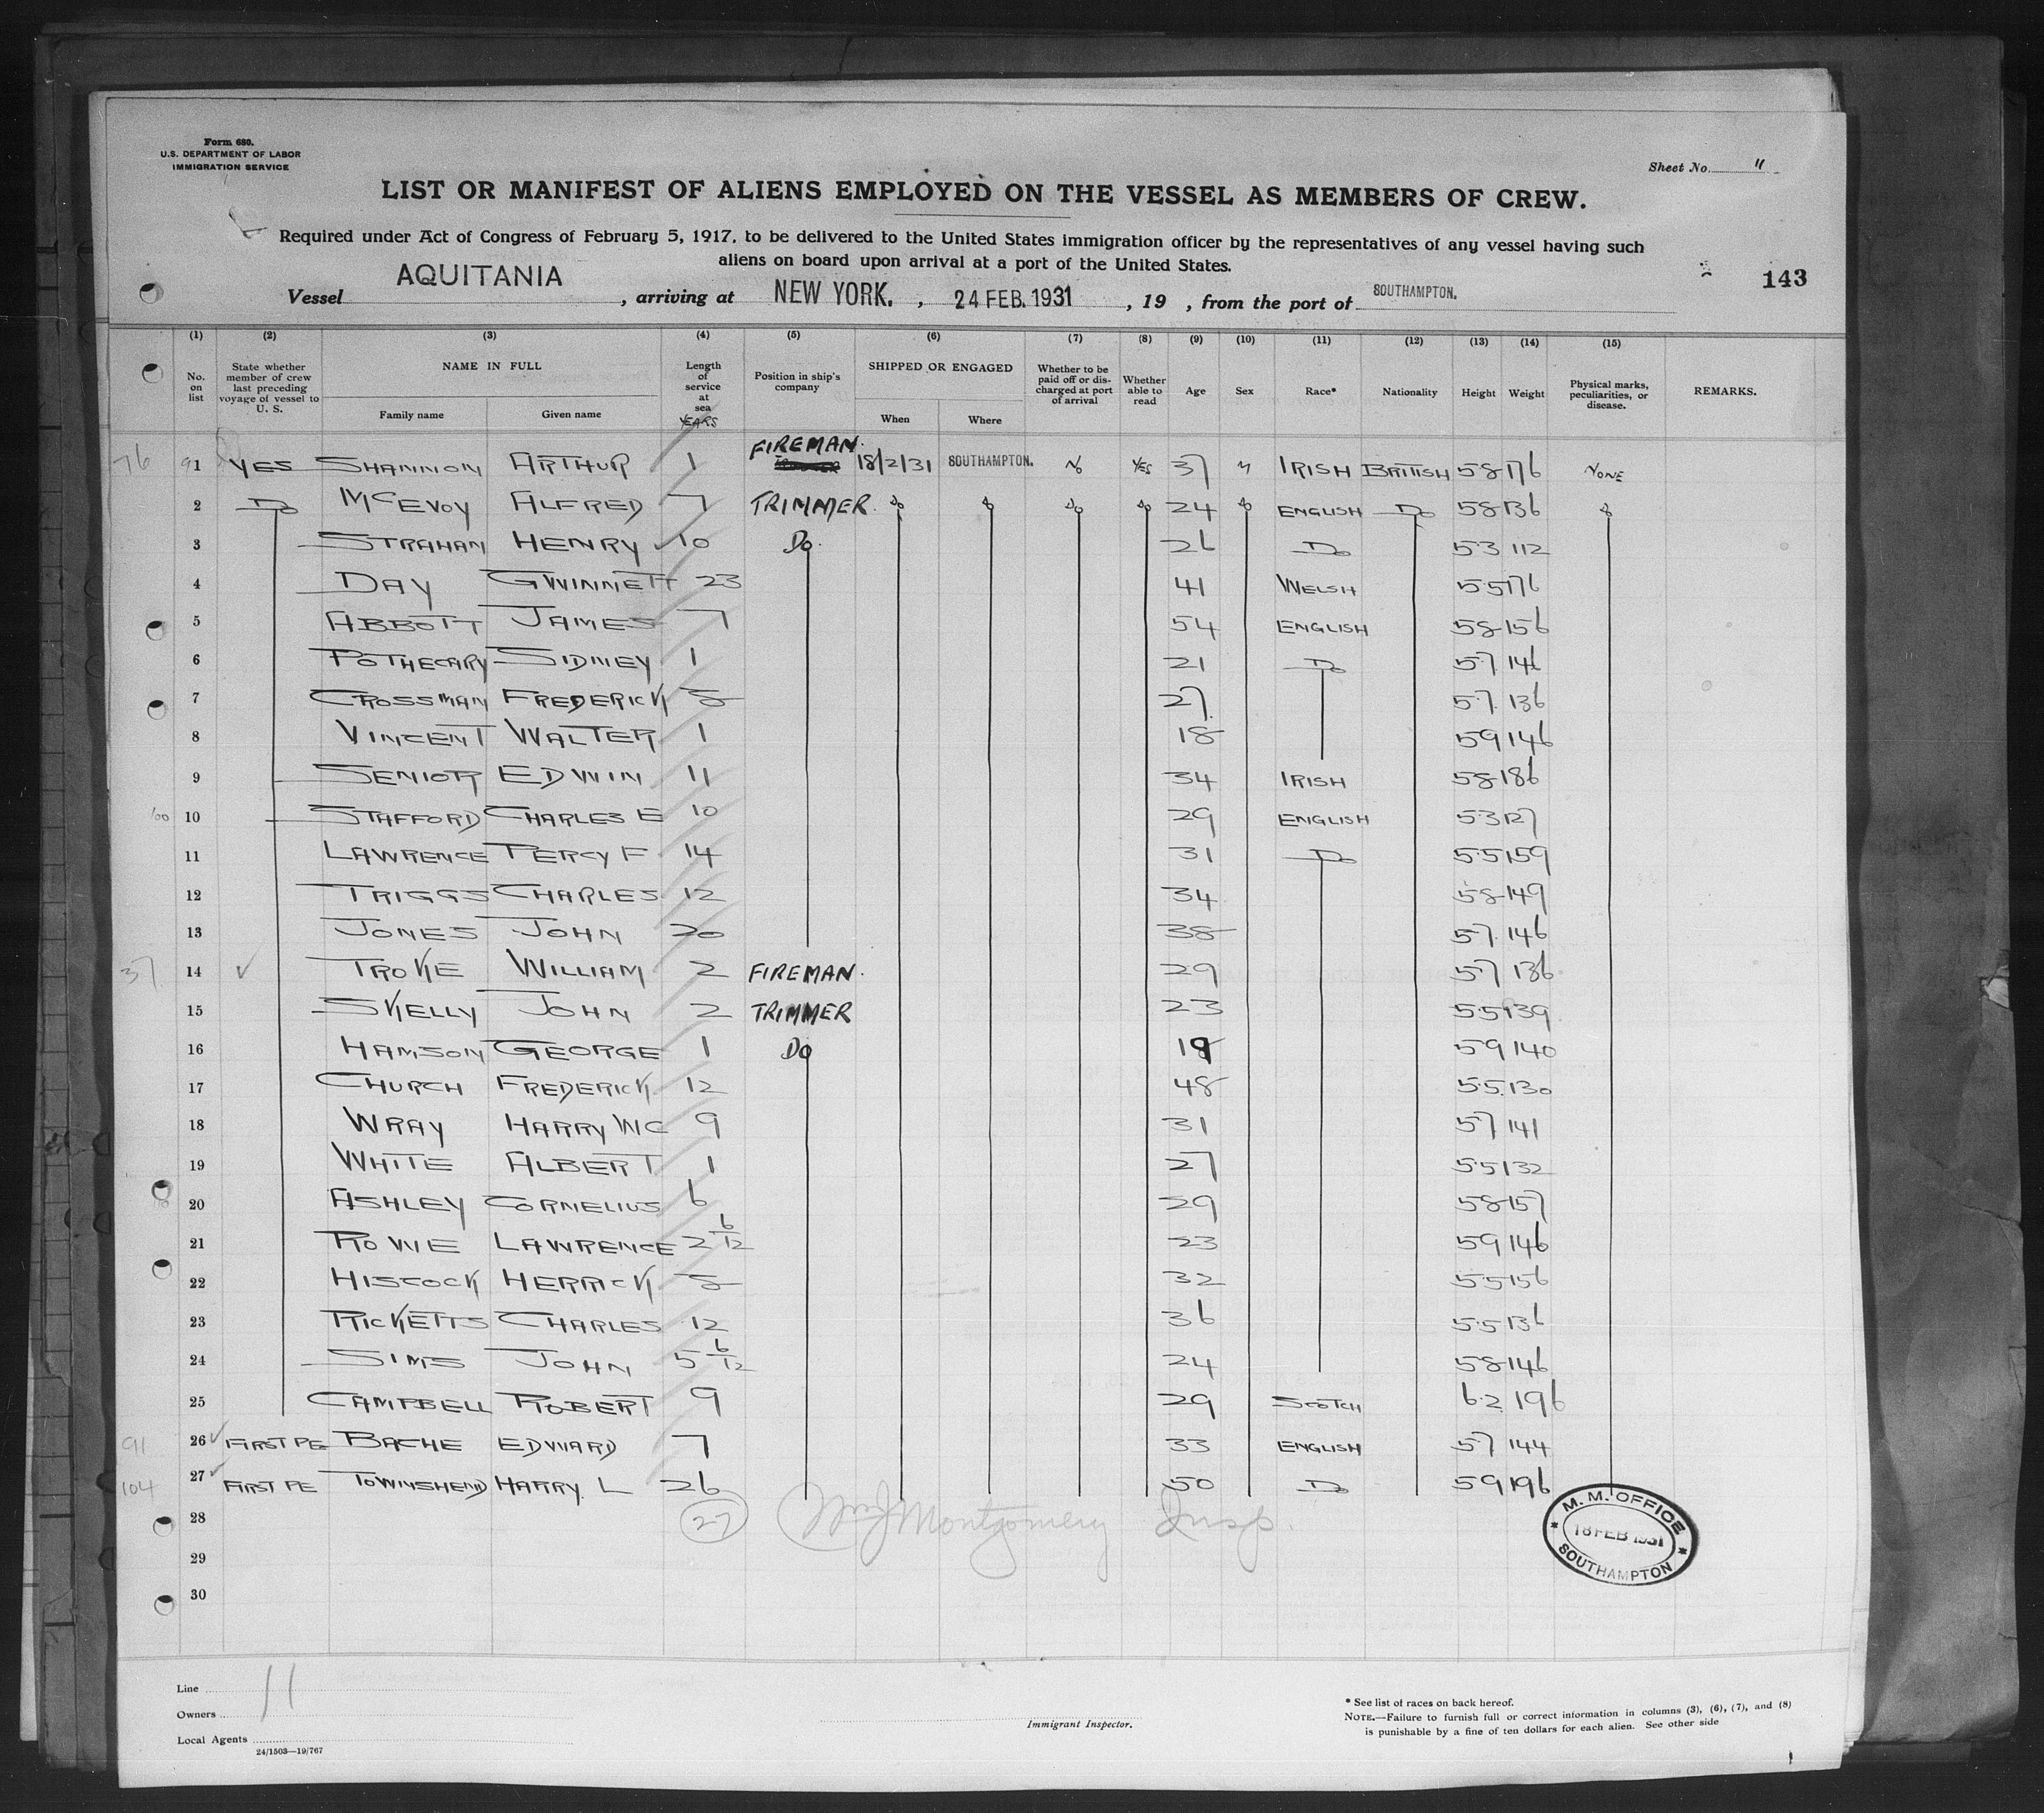 Form 680.
U.S. DEPARTMENT OF LABOR
IMMIGRATION SERVICE
Sheet No. 11
LIST OR MANIFEST OF ALIENS EMPLOYED ON THE VESSEL AS MEMBERS OF CREW.
Required under Act of Congress of February 5, 1917, to be delivered to the United States immigration officer by the representatives of any vessel having such
aliens on board upon arrival at a port of the United States.
143
Vessel AQUITANIA, arriving at NEW YORK., 24 FEB. 1931, 19 , from the port of SOUTHAMPTON.
(1) (2) (3) (4) (5) (6) (7) (8) (9) (10) (11) (12) (13) (14) (15)
No. on list
State whether member of crew last preceding voyage of vessel to U. S.
NAME IN FULL
Family name
Given name
Length of service at sea
YEARS
Position in ship's company
SHIPPED OR ENGAGED
When
Where
Whether to be paid off or discharged at port of arrival
Whether able to read
Age
Sex
Race*
Nationality
Height
Weight
Physical marks, peculiarities, or disease.
REMARKS.
76 91 YES SHANNON ARTHUR 1 FIREMAN. 18/2/31 SOUTHAMPTON. No YES 37 M IRISH BRITISH 5 8 176 NONE
2 Do McEVOY ALFRED 7 TRIMMER. Do Do Do Do 24 Do ENGLISH Do 5 8 136 Do
3 STRAHAN HENRY 10 Do. 26 Do 5 3 112
4 DAY GWINNETT 23 41 WELSH 5 5 176
5 ABBOTT JAMES 7 54 ENGLISH 5 8 156
6 POTHECARY SIDNEY 1 21 Do 5 7 146
7 CROSSMAN FREDERICK 8 27 5 7 136
8 VINCENT WALTER 1 18 5 9 146
9 SENIOR EDWIN 11 34 IRISH 5 8 186
100 10 STAFFORD CHARLES E 10 29 ENGLISH 5 3 127
11 LAWRENCE PERCY F 14 31 Do 5 5 159
12 TRIGGS CHARLES 12 34 5 8 149
13 JONES JOHN 20 38 5 7 146
37 14 TROKE WILLIAM 2 FIREMAN. 29 5 7 136
15 SKELLY JOHN 2 TRIMMER 23 5 5 139
16 HAMSON GEORGE 1 Do 19 5 9 140
17 CHURCH FREDERICK 12 48 5 5 130
18 WRAY HARRY WC 9 31 5 7 141
19 WHITE ALBERT 1 27 5 5 132
20 ASHLEY CORNELIUS 6 29 5 8 157
21 ROWE LAWRENCE 2 6/12 23 5 9 146
22 HISCOCK HERRICK 8 32 5 5 156
23 RICKETTS CHARLES 12 36 5 5 136
24 SIMS JOHN 5 6/12 24 5 8 146
25 CAMPBELL ROBERT 9 29 SCOTCH 6 2 196
91 26 FIRST PE BACHE EDWARD 7 33 ENGLISH 5 7 144
104 27 FIRST PE TOWNSHEND HARRY L 26 50 Do 5 9 196
28 27 Wm J Montgomery Insp.
29
30
M. M. OFFICE
18 FEB 1931
SOUTHAMPTON
Line 11
Owners
Local Agents
24/1503—19/767
Immigrant Inspector.
* See list of races on back hereof.
NOTE.—Failure to furnish full or correct information in columns (3), (6), (7), and (8)
is punishable by a fine of ten dollars for each alien. See other side